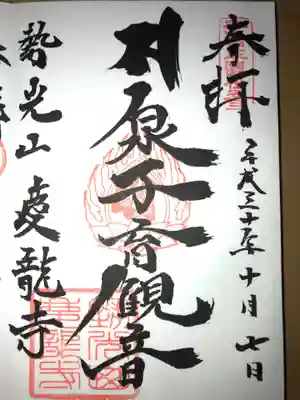 奉拝
平成三十年十月七日
泉子育観音
勢光山 慶龍寺